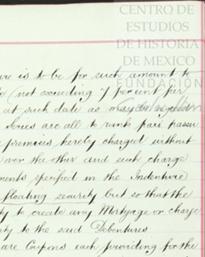 CENTRO DE
ESTUDIOS
DE HISTORIA
DE MEXICO
FUNDACIÓN
is to be for such amount to
(not exceeding 7 per cent per
at such date as may be
are all to rank pari passu
premises hereby charged without
over the other and such charge
specified in the Indenture
floating security but so that the
to create any Mortgage or charge
to the said Debentures
are Coupons each providing for the